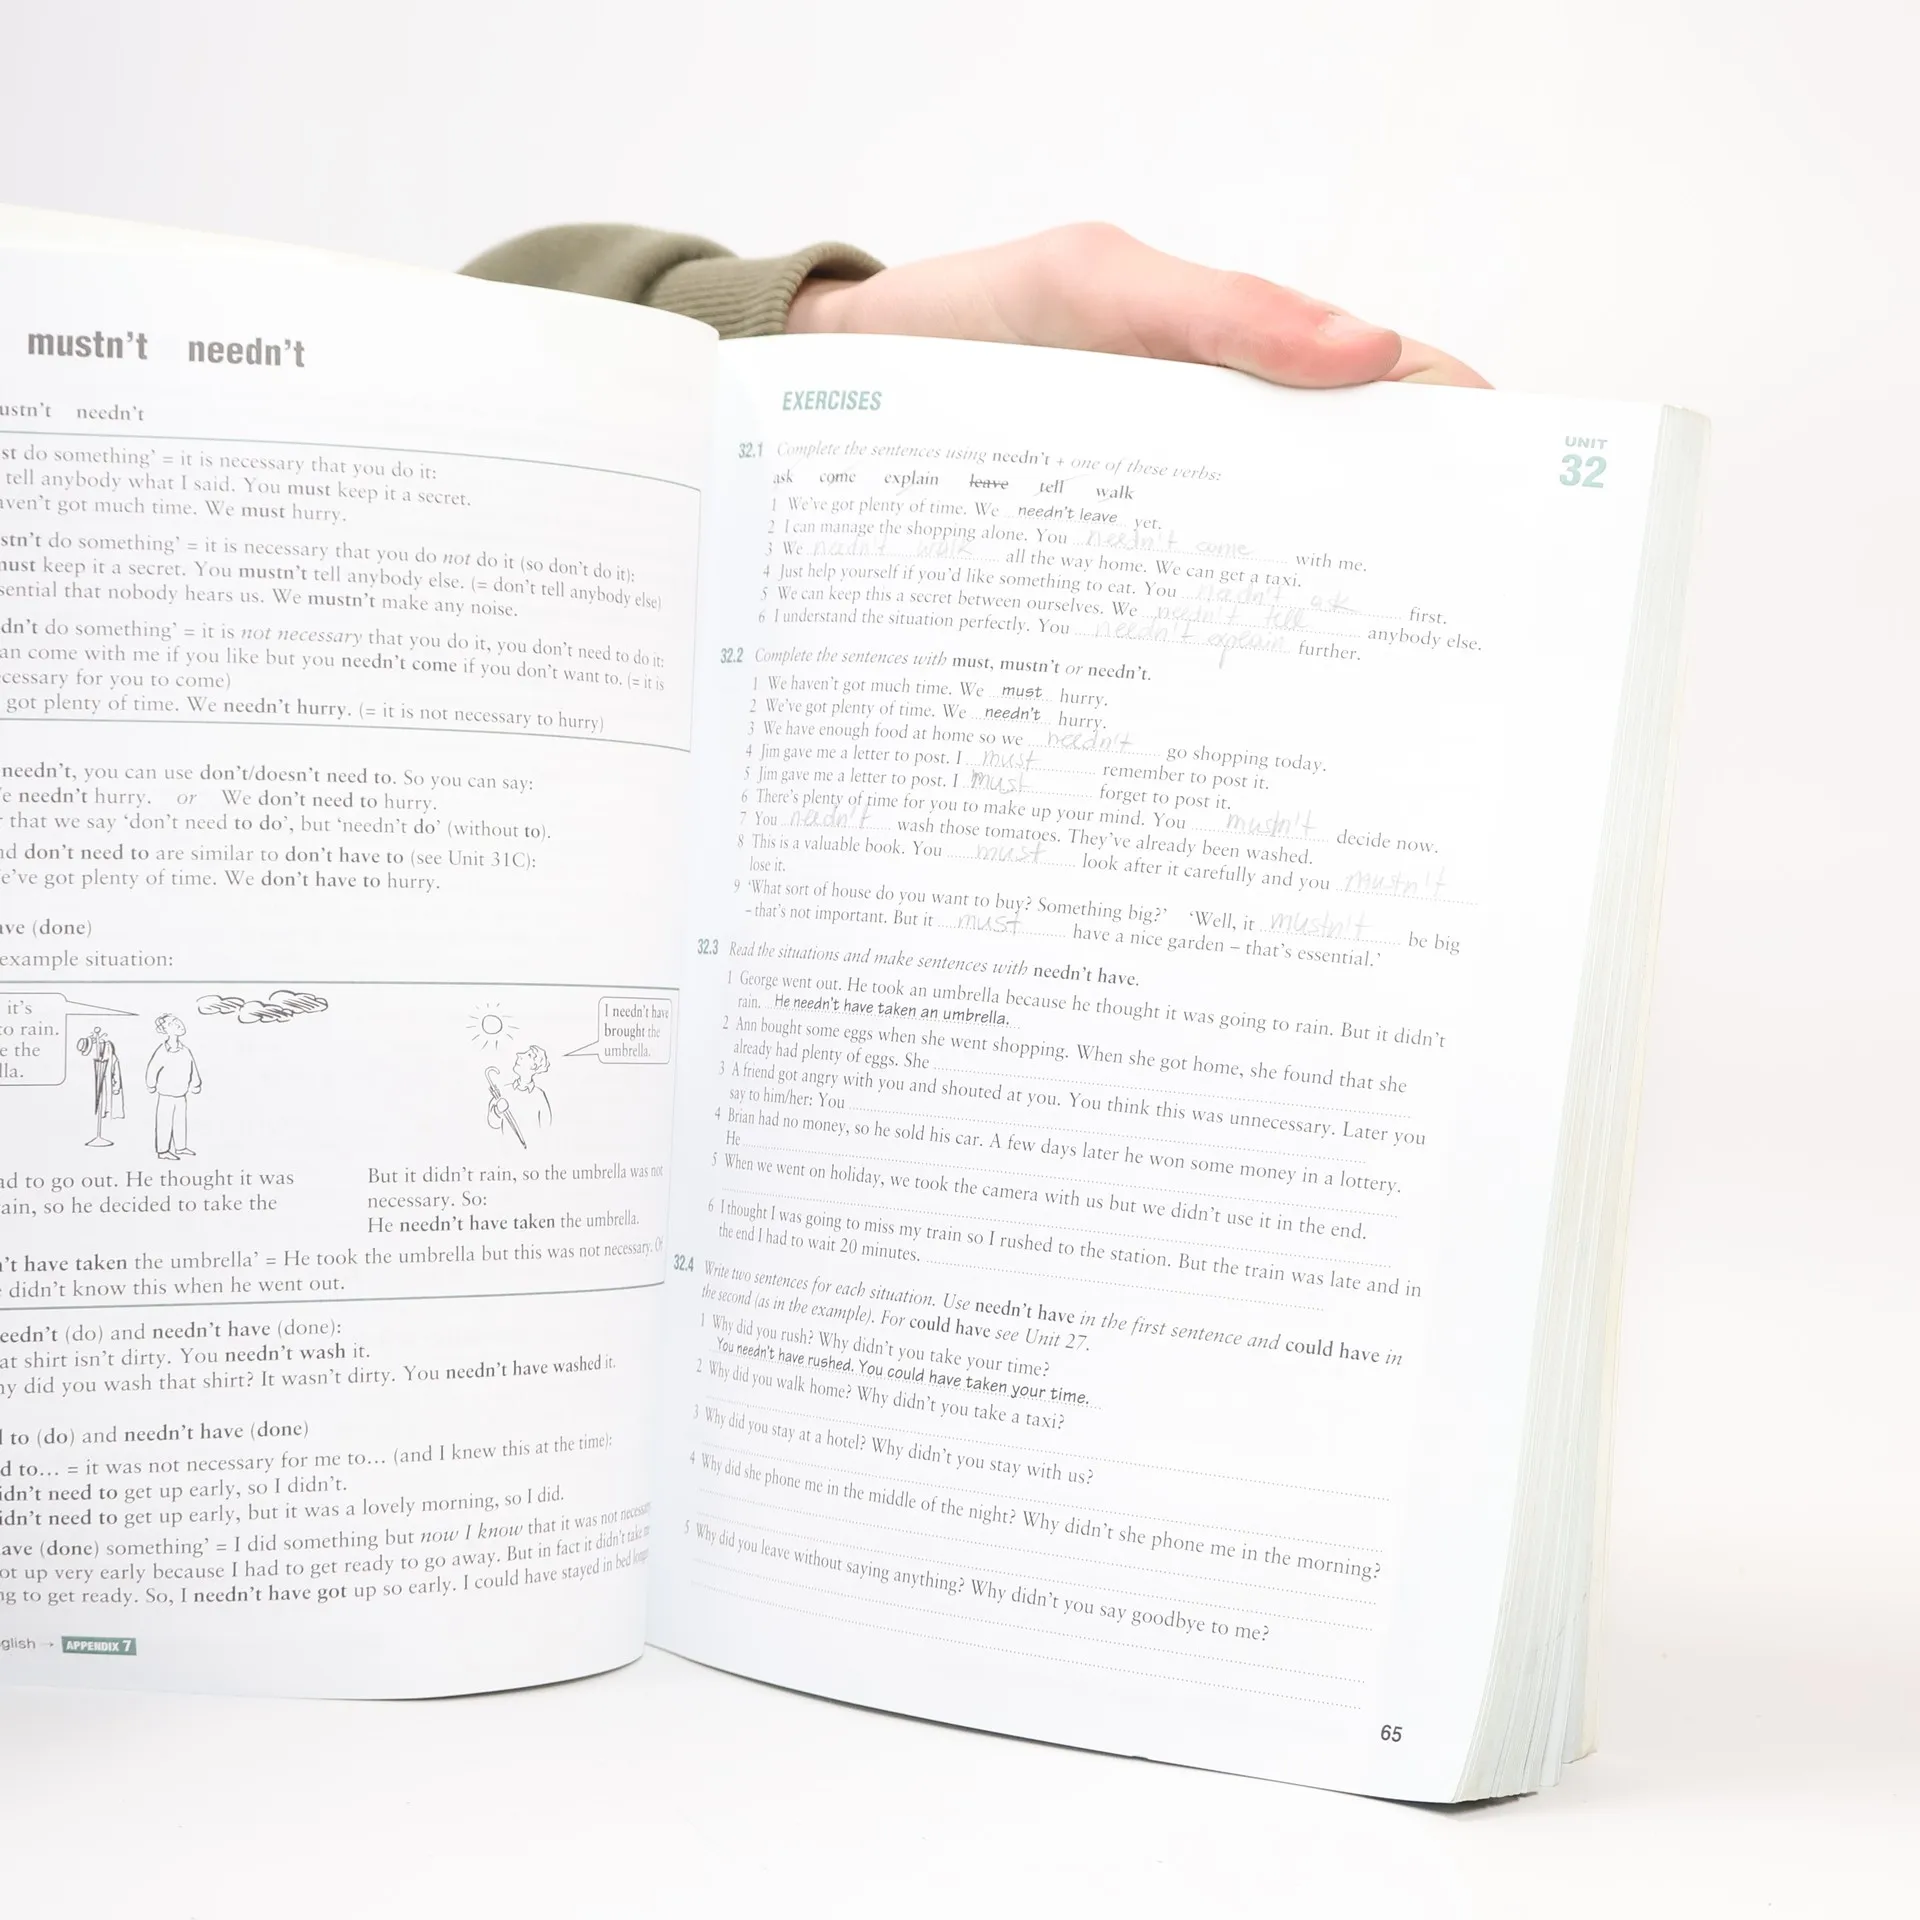 mustn't needn't
needn't
do something' = it is necessary that you do it:
tell anybody what I said. You must keep it a secret.
haven't got much time. We must hurry.
do something' = it is necessary that you do not do it (so don't do it):
must keep it a secret. You mustn't tell anybody else. (= don't tell anybody else)
that nobody hears us. We mustn't make any noise.
do something' = it is not necessary that you do it, you don't need to do it:
come with me if you like but you needn't come if you don't want to. (= it is
for you to come)
got plenty of time. We needn't hurry. (= it is not necessary to hurry)
needn't, you can use don't/doesn't need to. So you can say:
needn't hurry. or We don't need to hurry.
that we say 'don't need to do', but 'needn't do' (without to).
don't need to are similar to don't have to (see Unit 31C):
got plenty of time. We don't have to hurry.
(done)
example situation:
it's
to rain.
the
I needn't have
brought the
umbrella.
to go out. He thought it was
so he decided to take the
But it didn't rain, so the umbrella was not
necessary. So:
He needn't have taken the umbrella.
have taken the umbrella' = He took the umbrella but this was not necessary. Of
didn't know this when he went out.
needn't (do) and needn't have (done):
shirt isn't dirty. You needn't wash it.
did you wash that shirt? It wasn't dirty. You needn't have washed it.
to (do) and needn't have (done)
to... = it was not necessary for me to... (and I knew this at the time):
didn't need to get up early, so I didn't.
didn't need to get up early, but it was a lovely morning, so I did.
have (done) something' = I did something but now I know that it was not necessary
got up very early because I had to get ready to go away. But in fact it didn't take me
to get ready. So, I needn't have got up so early. I could have stayed in bed longer
→ APPENDIX 7
EXERCISES
UNIT
32
32.1 Complete the sentences using needn't + one of these verbs:
ask come explain leave tell walk
1 We've got plenty of time. We needn't leave yet.
2 I can manage the shopping alone. You needn't come with me.
3 We needn't walk all the way home. We can get a taxi.
4 Just help yourself if you'd like something to eat. You needn't ask first.
5 We can keep this a secret between ourselves. We needn't tell anybody else.
6 I understand the situation perfectly. You needn't explain further.
32.2 Complete the sentences with must, mustn't or needn't.
1 We haven't got much time. We must hurry.
2 We've got plenty of time. We needn't hurry.
3 We have enough food at home so we needn't go shopping today.
4 Jim gave me a letter to post. I must remember to post it.
5 Jim gave me a letter to post. I must forget to post it.
6 There's plenty of time for you to make up your mind. You mustn't decide now.
7 You needn't wash those tomatoes. They've already been washed.
8 This is a valuable book. You must look after it carefully and you mustn't
lose it.
9 'What sort of house do you want to buy? Something big?' 'Well, it mustn't be big
– that's not important. But it must have a nice garden – that's essential.'
32.3 Read the situations and make sentences with needn't have.
1 George went out. He took an umbrella because he thought it was going to rain. But it didn't
rain. He needn't have taken an umbrella.
2 Ann bought some eggs when she went shopping. When she got home, she found that she
already had plenty of eggs. She
3 A friend got angry with you and shouted at you. You think this was unnecessary. Later you
say to him/her: You
4 Brian had no money, so he sold his car. A few days later he won some money in a lottery.
He
5 When we went on holiday, we took the camera with us but we didn't use it in the end.
6 I thought I was going to miss my train so I rushed to the station. But the train was late and in
the end I had to wait 20 minutes.
32.4 Write two sentences for each situation. Use needn't have in the first sentence and could have in
the second (as in the example). For could have see Unit 27.
1 Why did you rush? Why didn't you take your time?
You needn't have rushed. You could have taken your time.
2 Why did you walk home? Why didn't you take a taxi?
3 Why did you stay at a hotel? Why didn't you stay with us?
4 Why did she phone me in the middle of the night? Why didn't she phone me in the morning?
5 Why did you leave without saying anything? Why didn't you say goodbye to me?
65